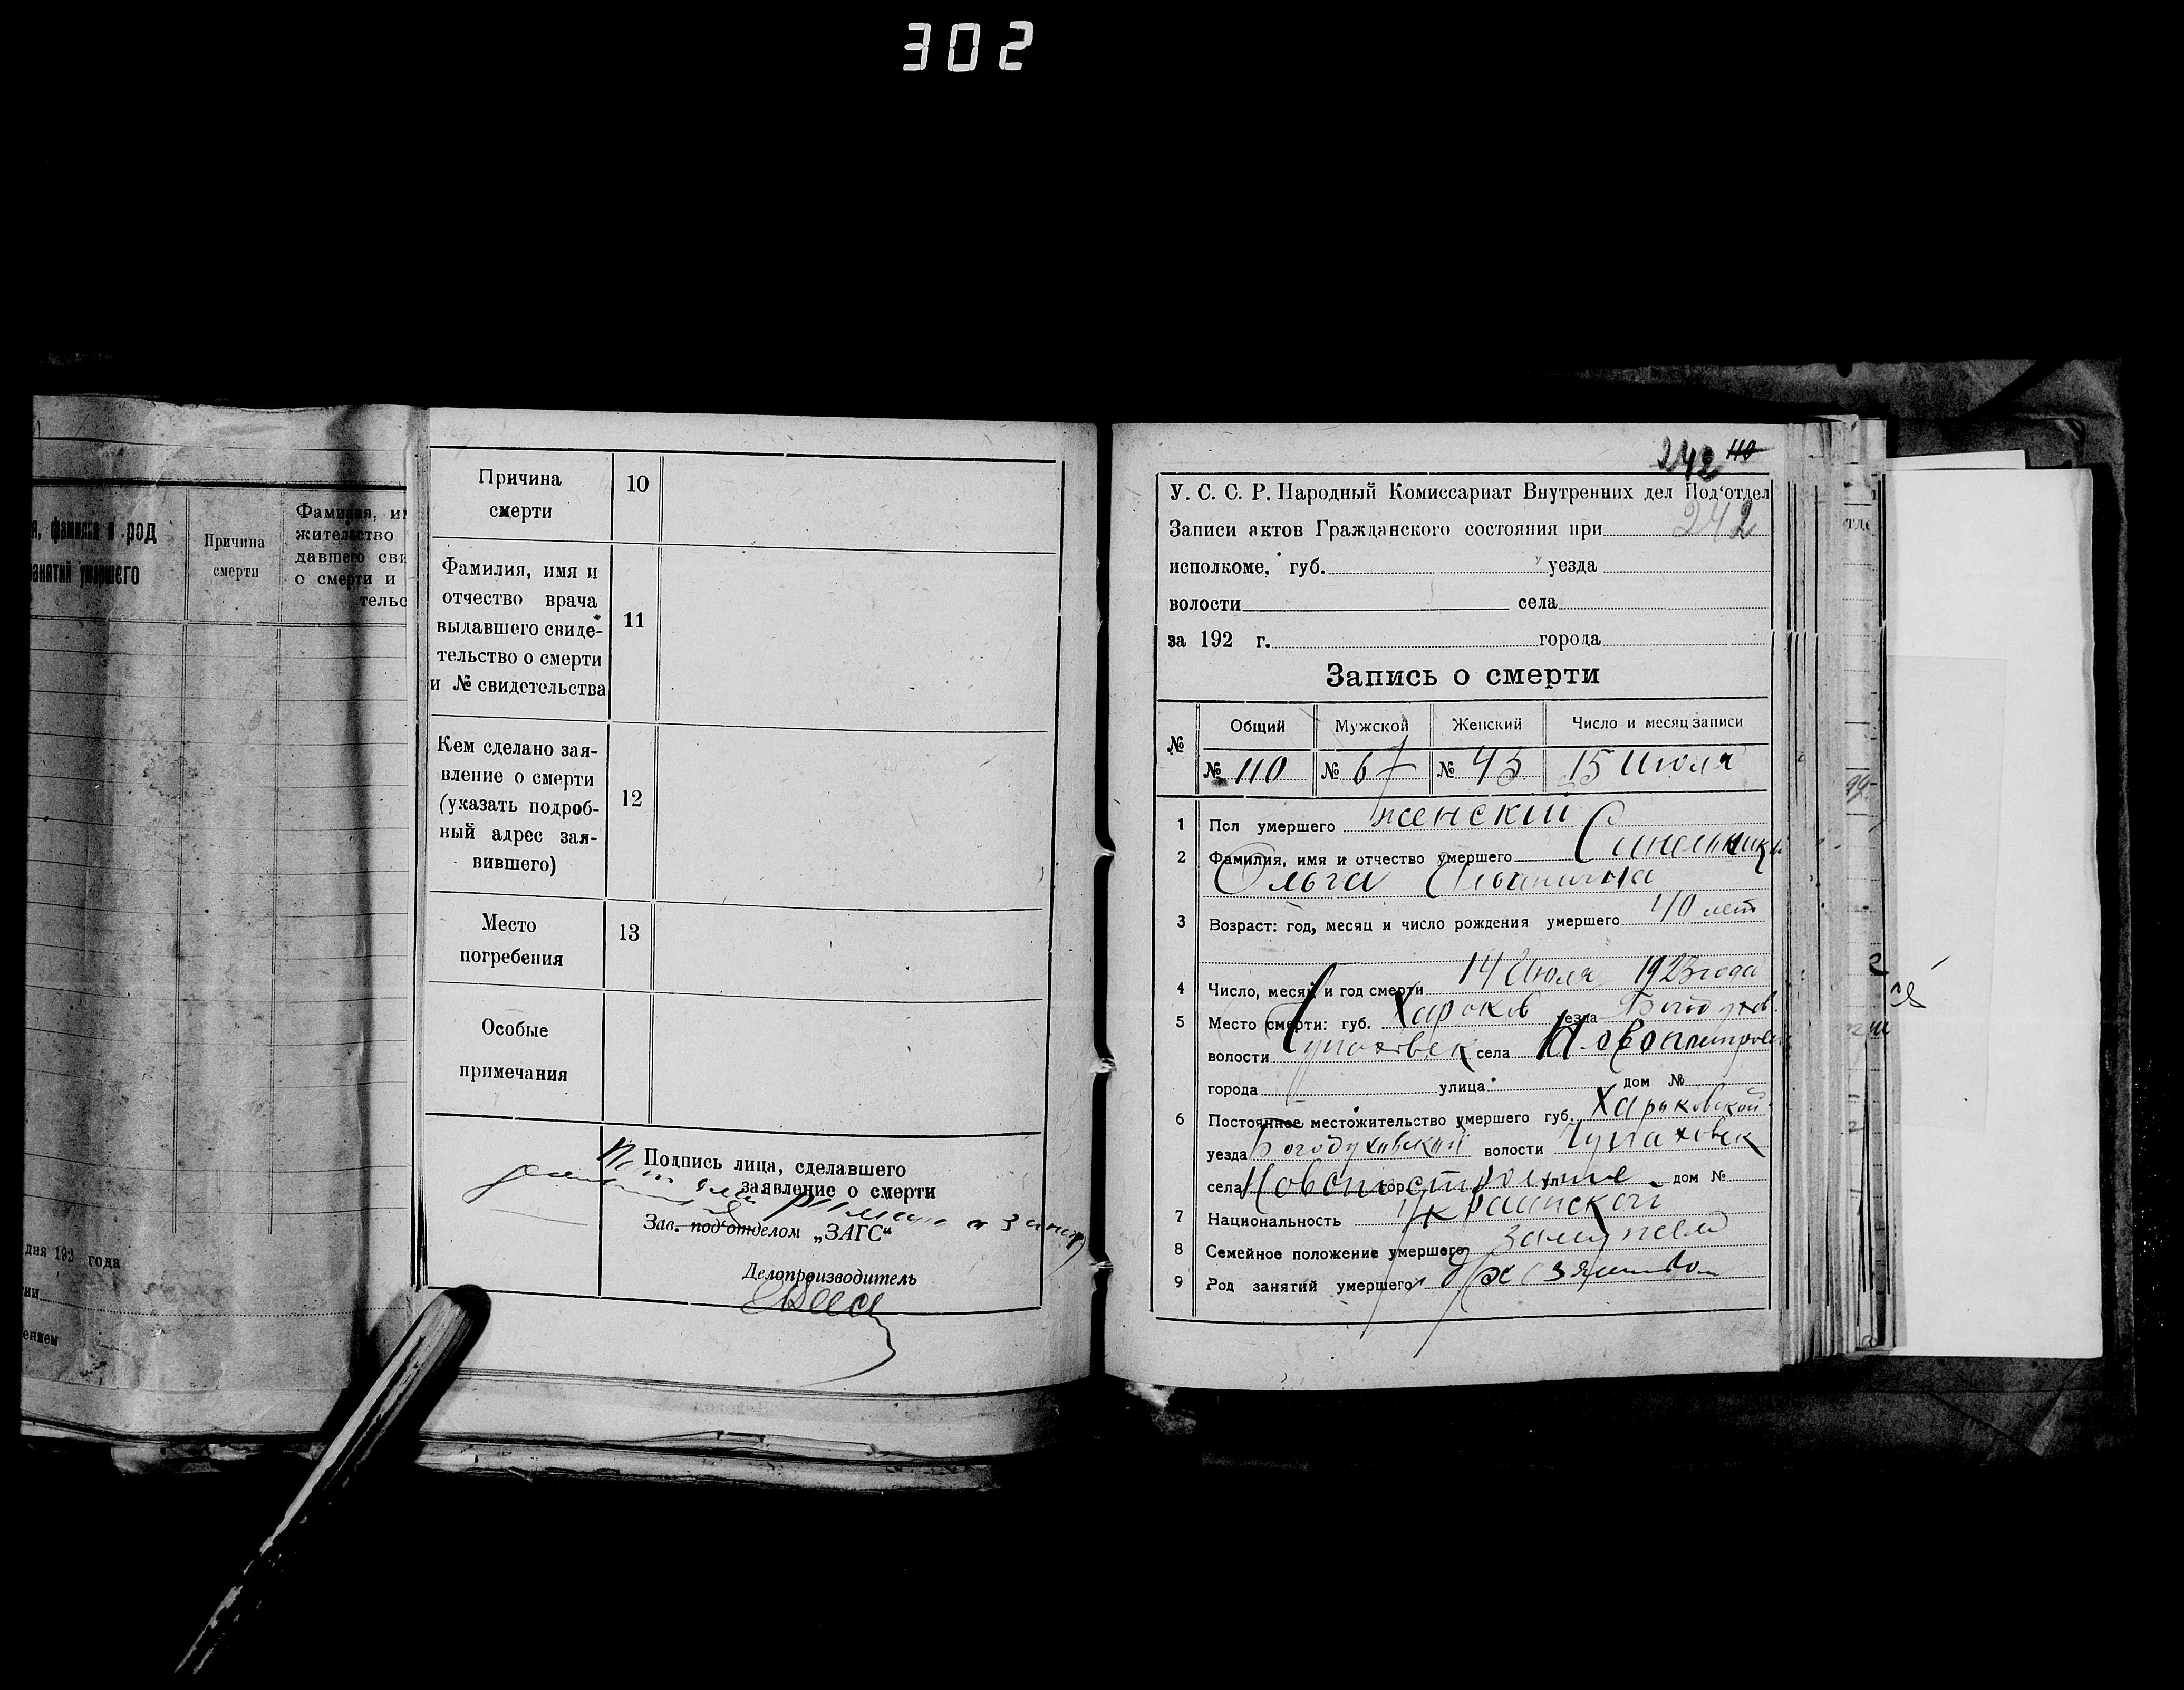 302
я, фамилия и род
занятий умершего
Причина
смерти
Фамилия, и
жительство
давшего сви
о смерти и
тельс
дня 193 года
Причина
смерти
10
Фамилия, имя и
отчество врача
выдавшего свиде-
тельство о смерти
и № свидетельства
11
Кем сделано зая-
вление о смерти
(указать подроб-
ный адрес зая-
вившего)
12
Место
погребения
13
Особые
примечания
Подпись лица, сделавшего
заявление о смерти
Зав. под'отделом „ЗАГС“
Делопроизводитель
242 110
У. С. С. Р. Народный Комиссариат Внутренних дел Под'отдел
Записи актов Гражданского состояния при 242
исполкоме. губ. уезда
волости села
за 192 г. города
Запись о смерти
№ Общий Мужской Женский Число и месяц записи
№ 110 № 67 № 43 15 Июля
1 Пол умершего женский
2 Фамилия, имя и отчество умершего
Ольга
3 Возраст: год, месяц и число рождения умершего 40 лет
4 Число, месяц и год смерти 14 Июля 1923 года
5 Место смерти: губ. Харьков уезда Богодухов.
волости села
города улица дом №
6 Постоянное местожительство умершего губ. Харьковской
уезда Богодуховский волости
села гор. ул. дом №
7 Национальность Украинской
8 Семейное положение умершего замужем
9 Род занятий умершего